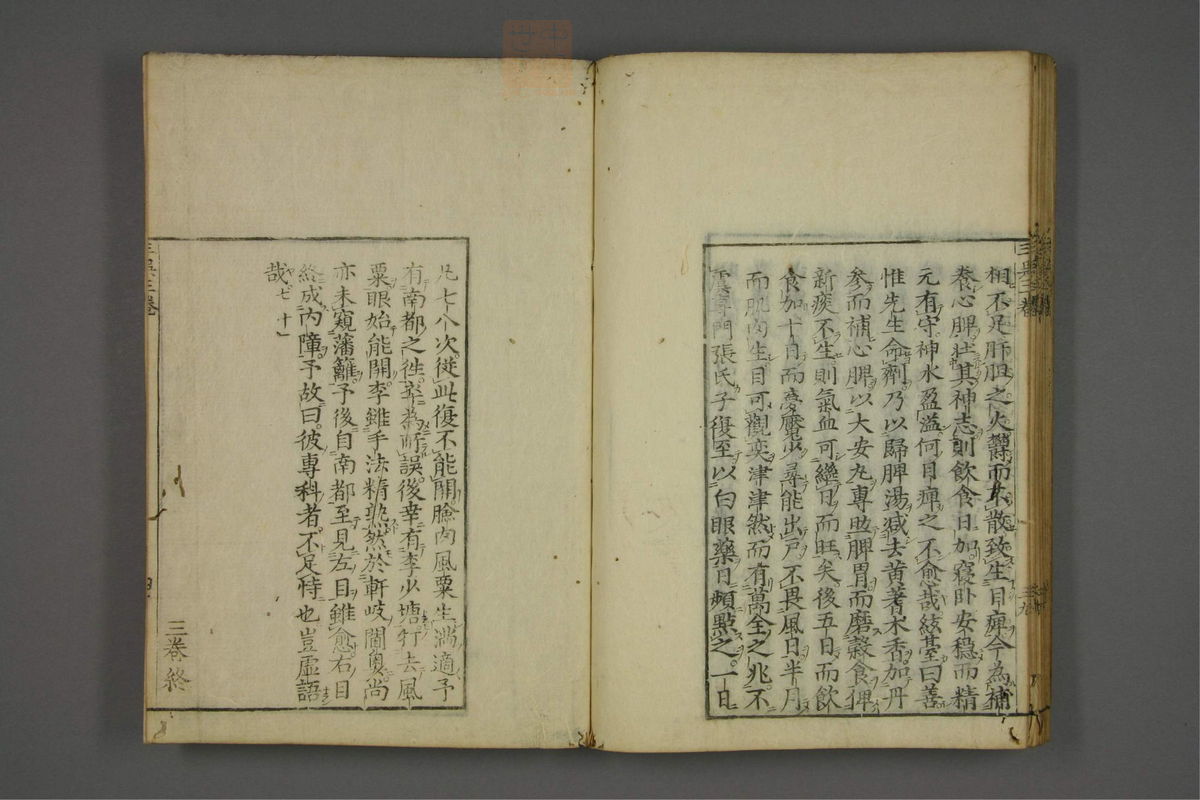 相不足肝胆之火鬱而不散致生目痺今為補
養心脾壮其神志則飲食日加寝卧安穏而精
元有守神水盈溢何目痺之不愈哉絃臺曰善
惟先生命劑乃以歸脾湯減去黄蓍木香加丹
参而補心脾以大安丸専助脾胃而磨穀食俾
新痰不生則氣血可繼日而旺矣後五日而飲
食加十日而憂魘少尋能出戸不畏風日半月
而肌肉生目可觀奕津津然而有萬全之兆不
虞専門張氏子復至以白眼藥日頻點之一日
凡七八次従此復不能開瞼内風粟生満適予
有南都之徃卒為所誤後幸有李少塘針去風
粟眼始能開李雖手法精熟然於軒岐閫奥尚
亦未窺藩籬予後自南都至見左目雖愈右目
終成内障予故曰彼専科者不足恃也豈虚語
哉
三巻終
三呉三巻